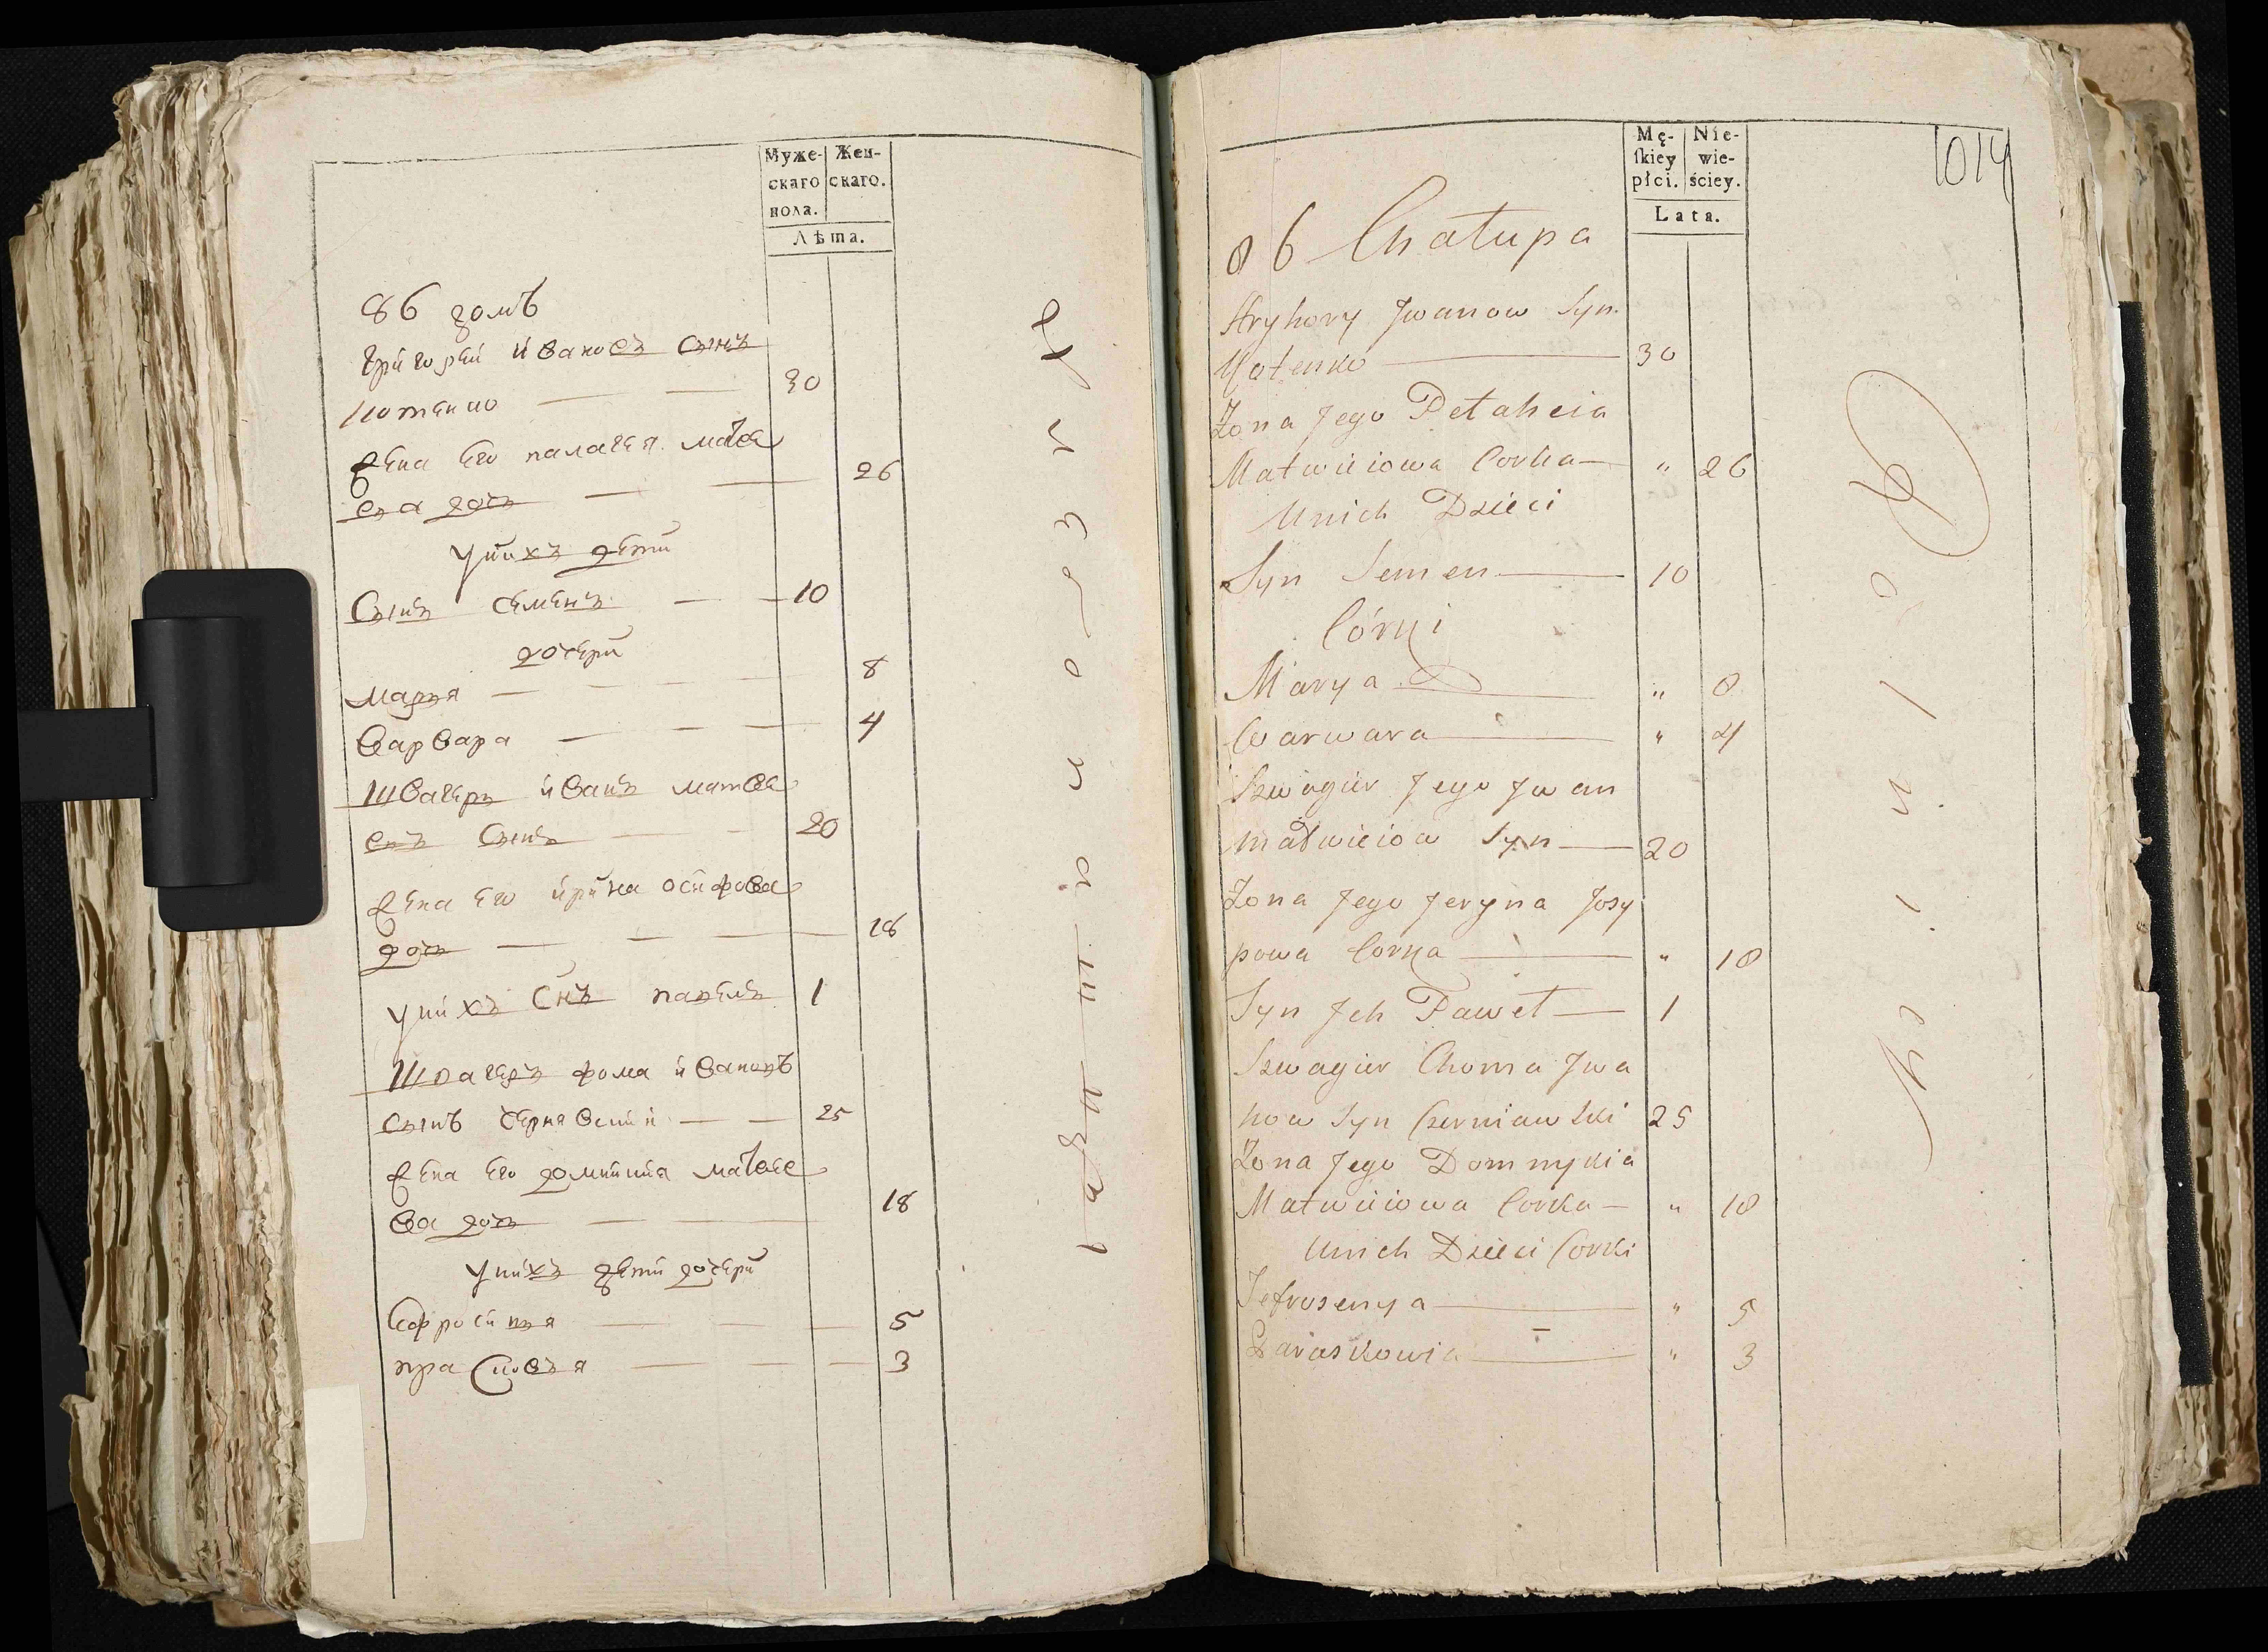 Муже-
скаго
пола.
Жен-
скаго.
Лѣта.
86 домъ
Григорей Ивановъ сынъ
Котенко — — 30
Жена Его палагея матве
ева дочь — — 26
У нихъ дети
Сынъ семенъ — — 10
дочери
марья — — — 8
Варвара — — — 4
Швагеръ иванъ матве
евъ Сынъ — — 20
Жена Его ирина осипова
дочь — — — 18
У нихъ Снъ павелъ 1
Швагеръ фома ивановъ
сынъ чернявский — — 25
Жена Его домникия матвее
ва дочь — — 18
У нихъ дети дочери
Ефросиния — — — 5
прасковья — — — 3
1014
Mę-
skiey
płci.
Nie-
wie-
ściey.
Lata.
86 Chałupa
Hryhory Jwanow Syn
Kotenko — 30
Żona Jego Petaheia
Matwieiowa Corka — " 26
Unich Dzieci
Syn Semen — 10
Córki
Marya — " 8
Warwara — " 4
Szwagier Jego Jwan
matwieiow Syn — 20
Żona Jego Jeryna Josy
powa Corka — " 18
Syn Jch Paweł — 1
Szwagier Choma Jwa
now Syn Czerniawski 25
Żona Jego Domnykia
Matwieiowa Corka — " 18
Unich Dzieci Corki
Jefrosenya — " 5
Paraskowia — " 3